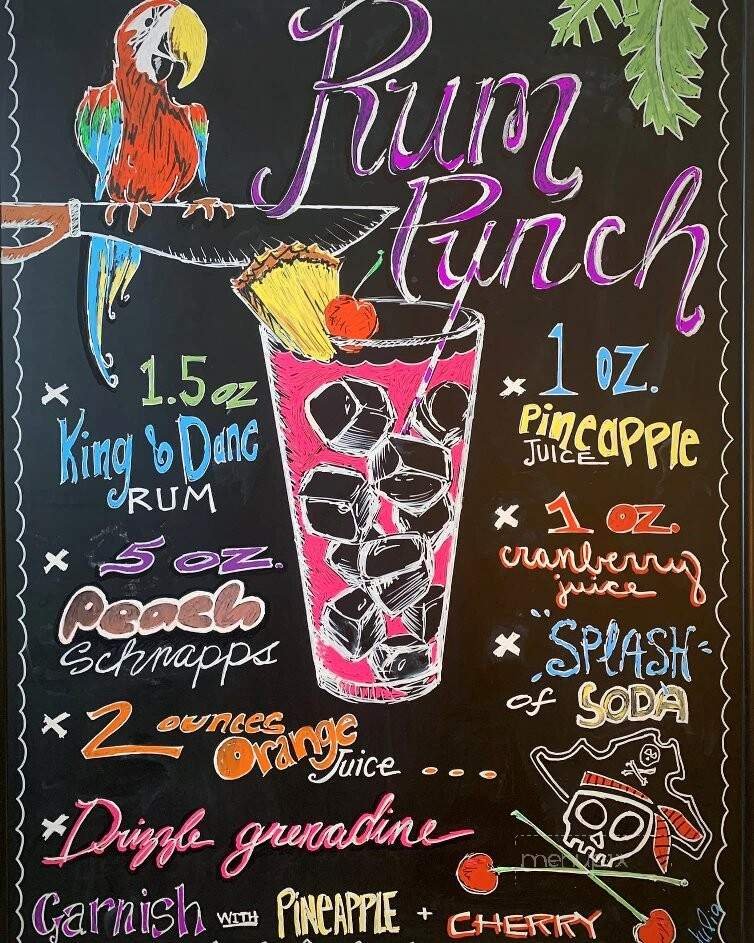 Rum
Punch
x 1.5 oz
King & Dane
RUM
x 5 oz.
Peach
Schnapps
x 2 ounces
Orange
Juice ....
x Drizzle grenadine
x 1 oz.
Pineapple
JUICE
x 1 oz.
cranberry
juice
x "SPLASH"
of SODA
Garnish WITH PINEAPPLE + CHERRY